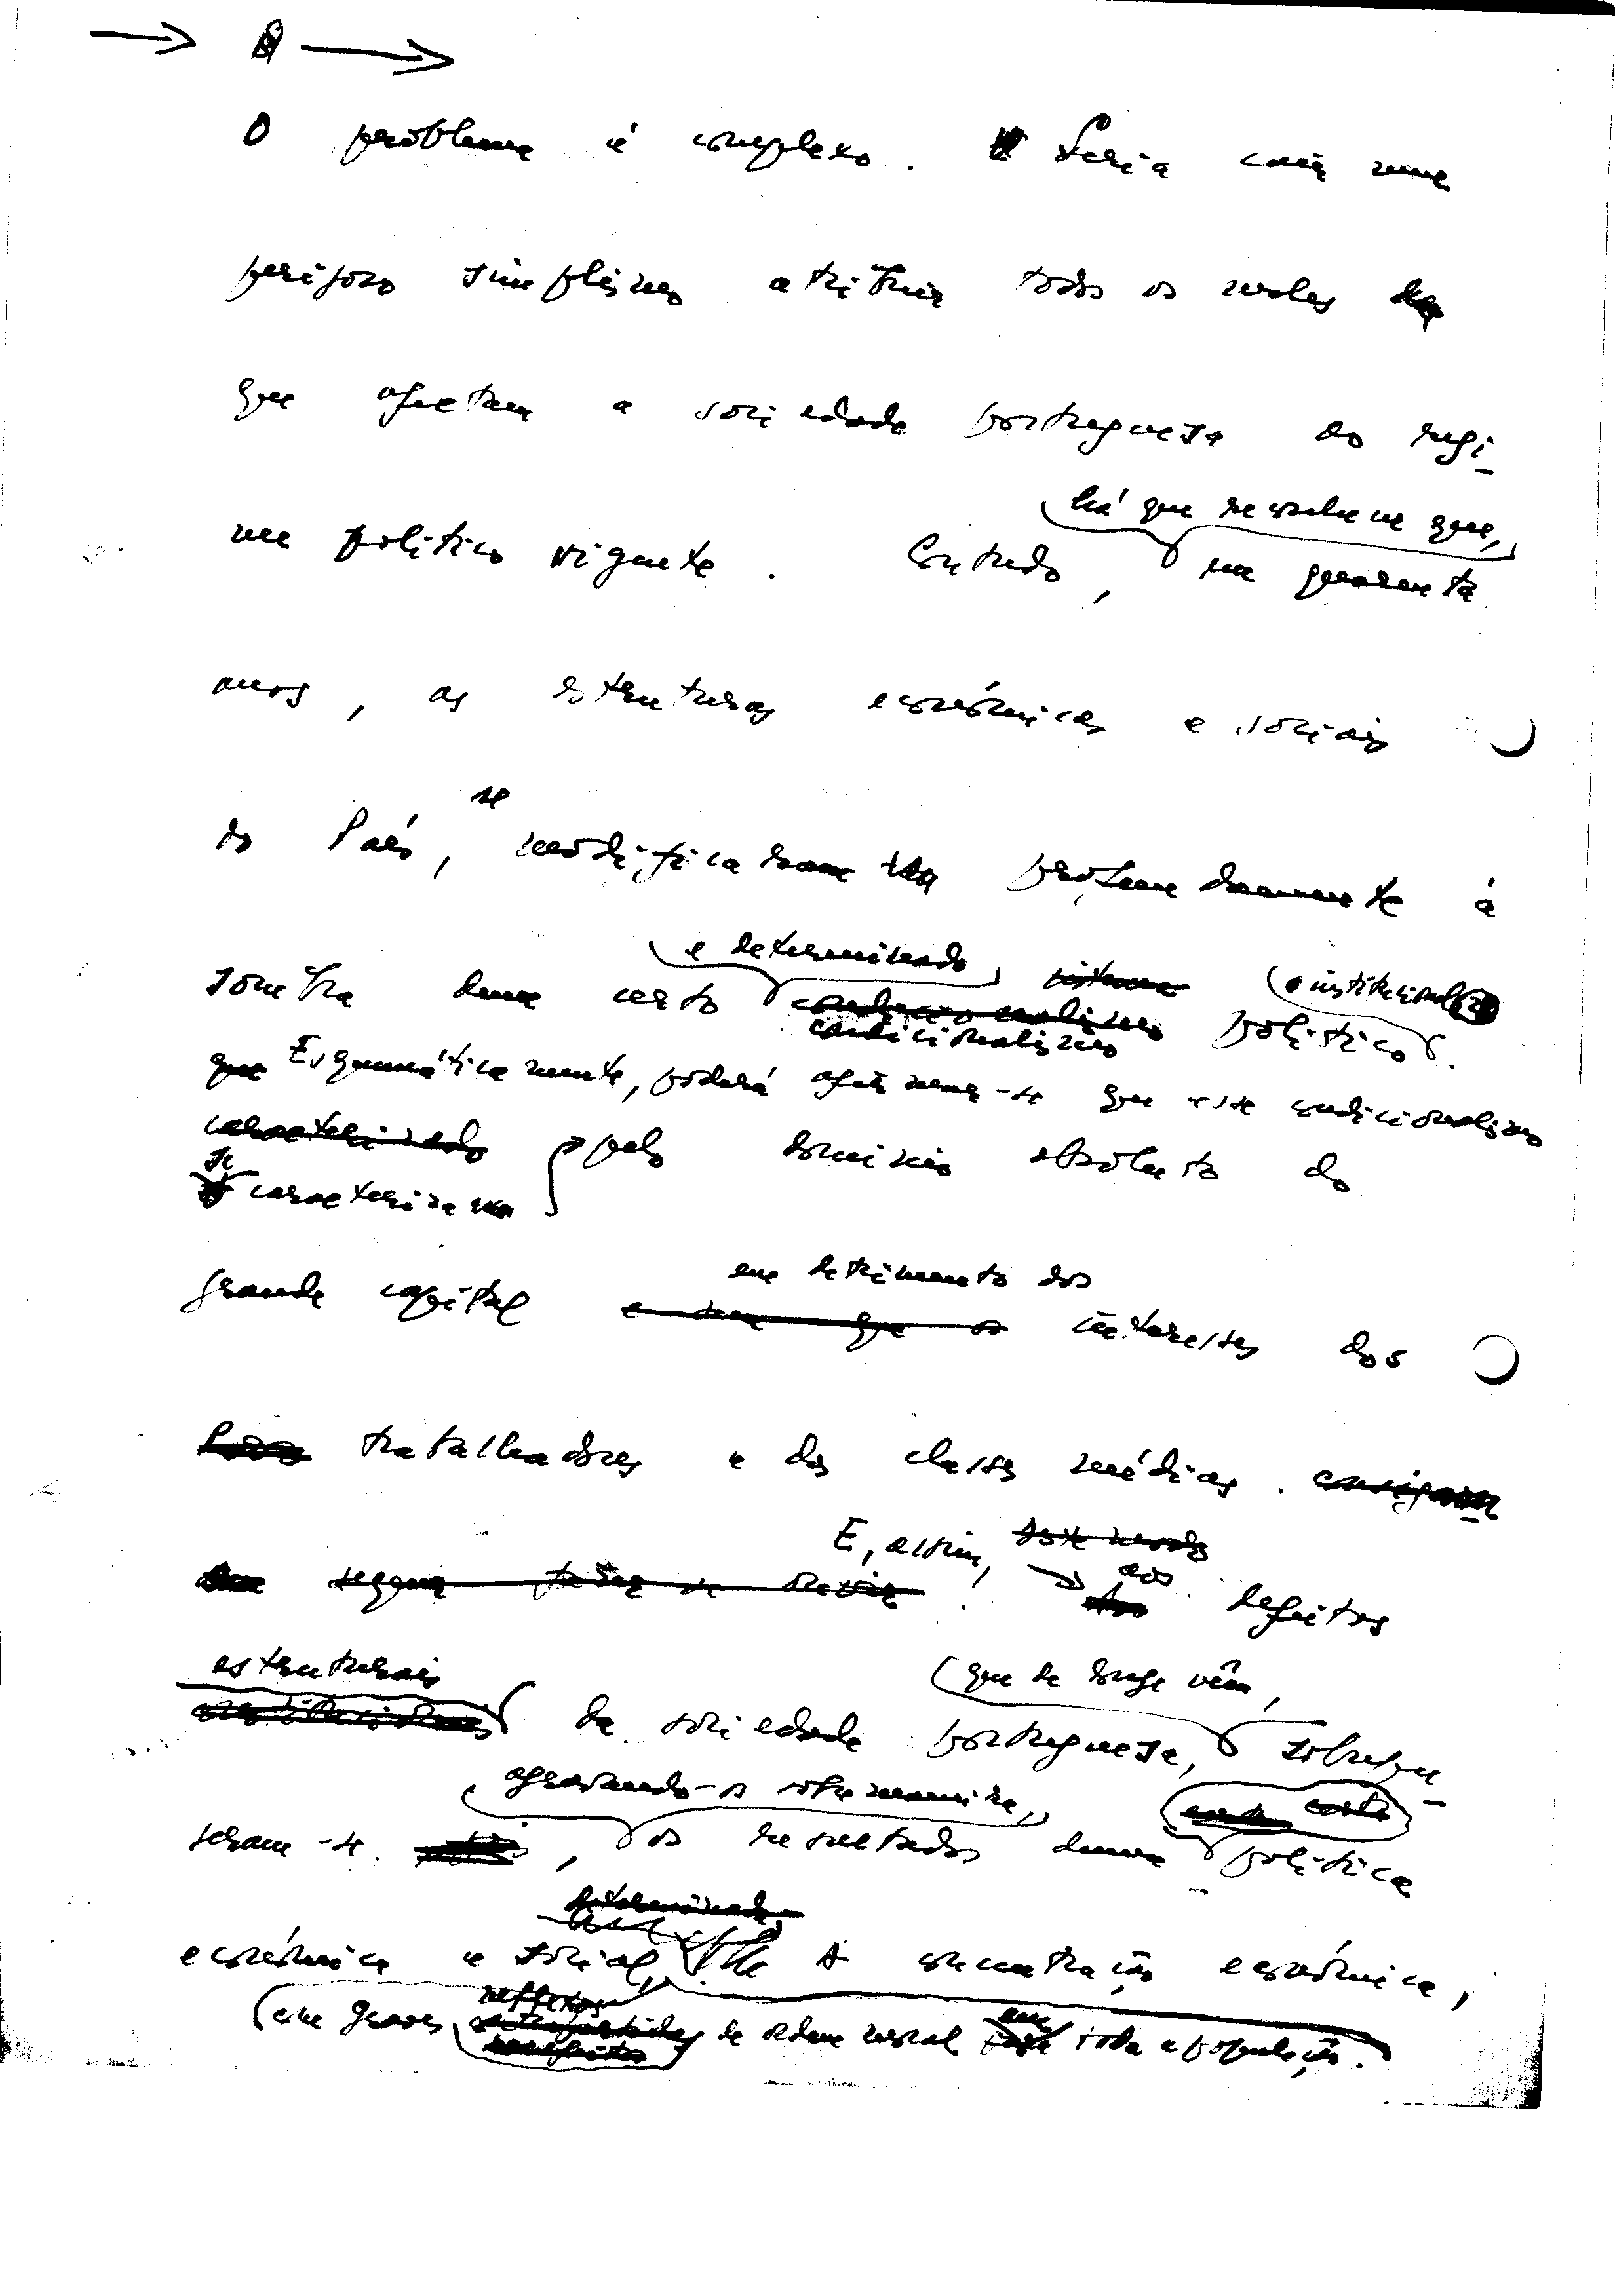 O problema é complexo. Seria cair num
perigoso simplismo atribuir todos os males
que afectam a sociedade portuguesa ao regi-
me político vigente. Contudo, há que reconhecer que,
em quarenta
anos, as estruturas económicas e sociais
do País, se modificaram profundamente à
sombra dum certo e determinado sistema e institucional
condicionalismo político.
que Esquemáticamente, poderá afirmar-se que esse condicionalismo
caracterizado pelo domínio absoluto do
se caracteriza
grande capital em detrimento dos
e sem que os interesses dos
trabalhadores e das classes médias. consigam
sequer fazer-se ouvir. E, assim, deste modo
aos defeitos
estruturais
da sociedade portuguesa, que de longe vêm, sobrepu-
seram-se, agravando-os sobremaneira, os resultados duma política
determinada
económica e social. A concentração económica,
com graves reflexos de ordem moral em toda a população.